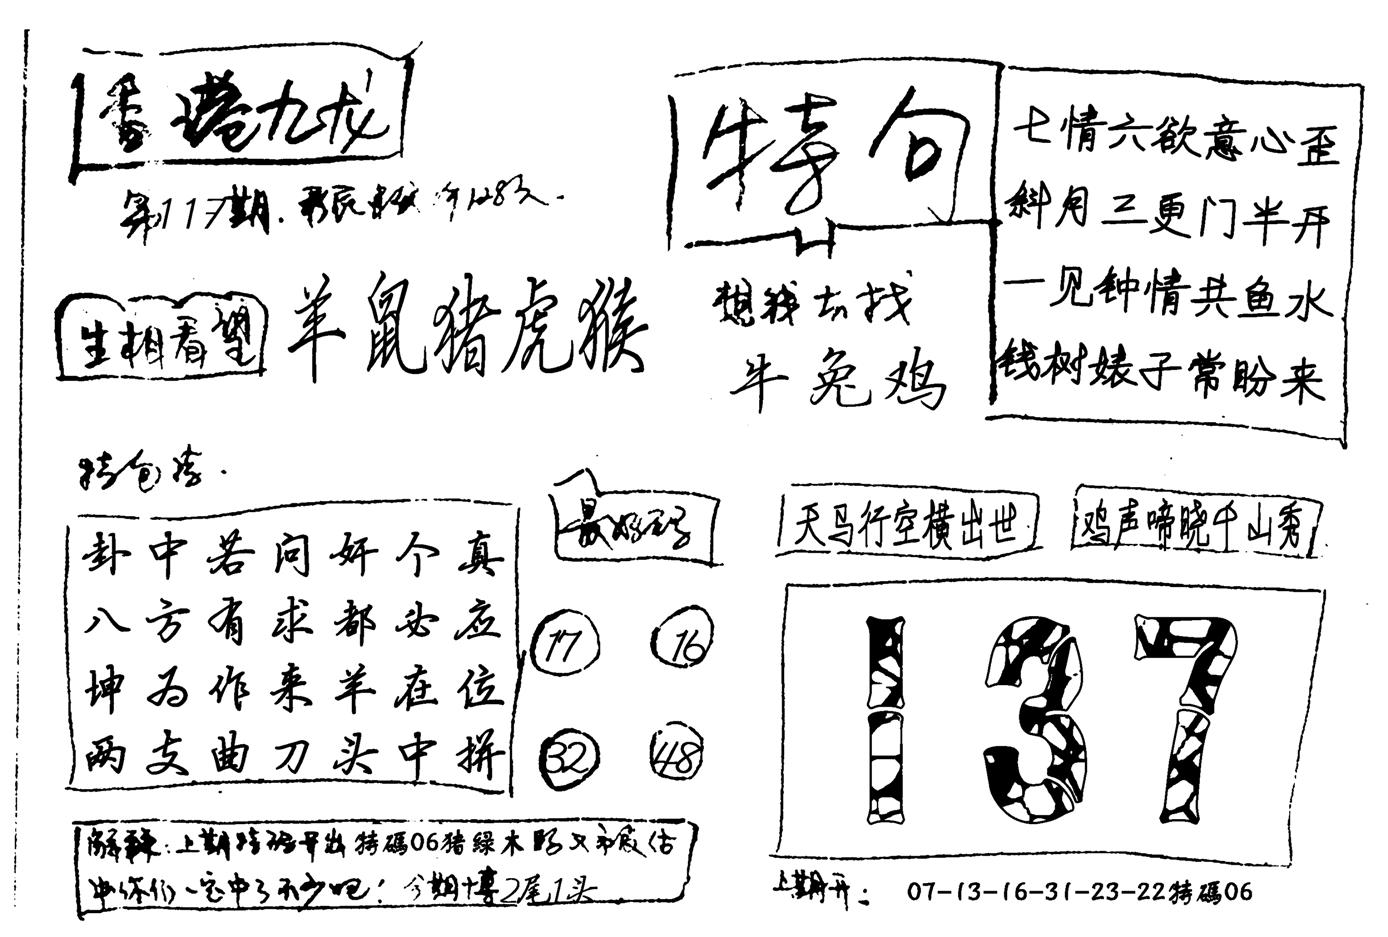 香港九龙
第117期.
生相看望
羊鼠猪虎猴
特句
想钱去找
牛兔鸡
七情六欲意心歪
斜月三更门半开
一见钟情共鱼水
钱树婊子常盼来
卦中若问奸个真
八方有求都必应
坤为作来羊在位
两支曲刀头中拼
17
16
32
48
天马行空横出世
鸡声啼晓千山秀
137
解释:上期特码开出特碼06猪绿木
中你们一定中了不少吧!今期十博2尾1头
上期开:07-13-16-31-23-22特碼06